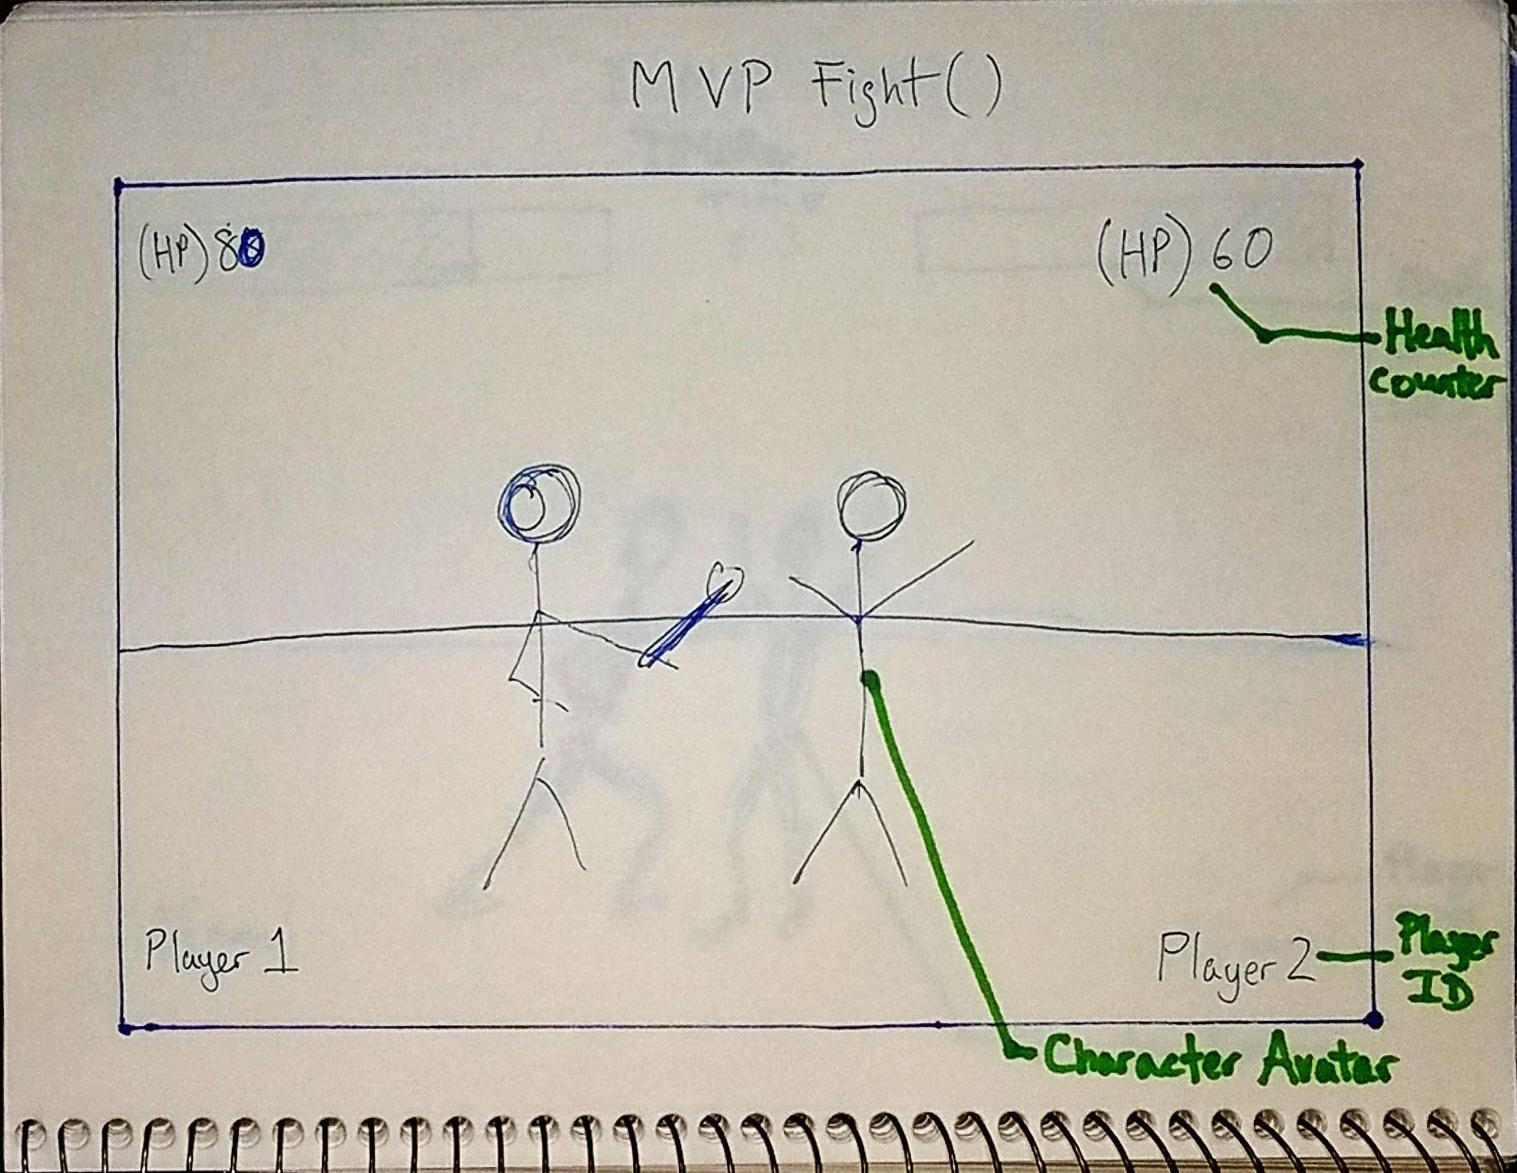 MVP Fight()
(HP) 80
(HP) 60
Health
counter
Player 1
Player 2
Player
ID
Character Avatar